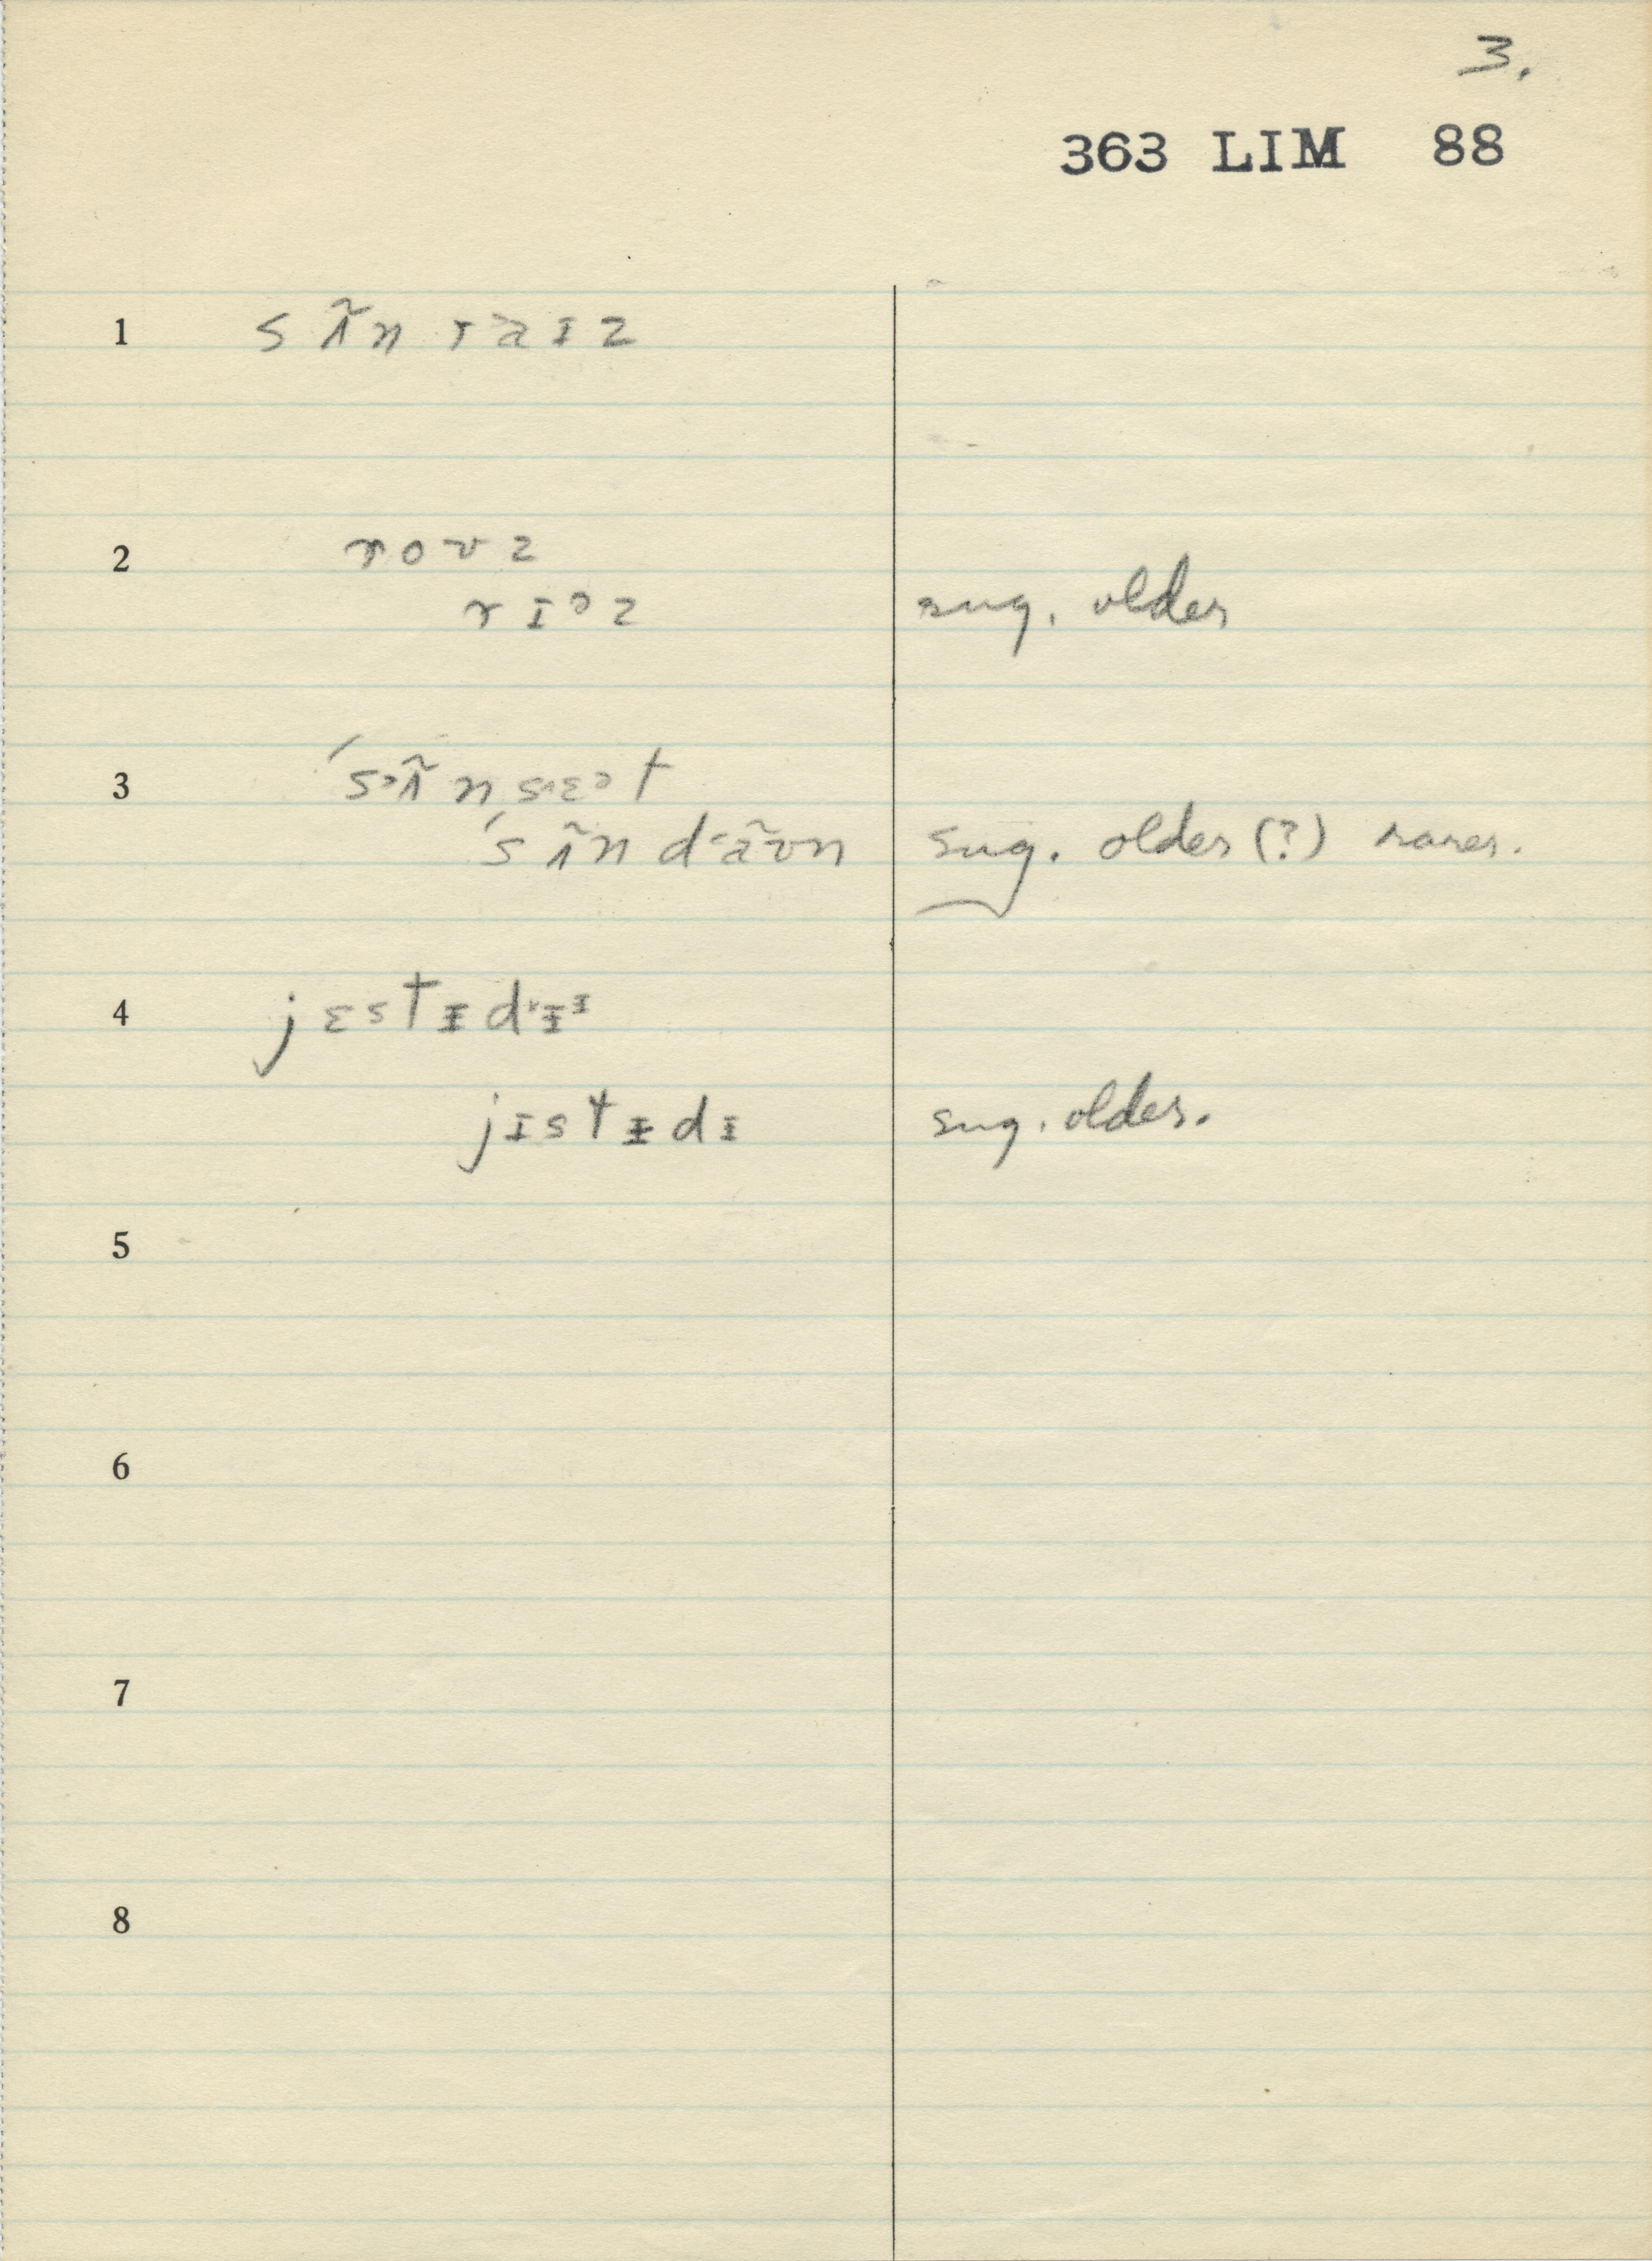 3.
363 LIM 88
1 s ʌ̃ n r a ɪ z
2 r o ʊ z
r ɪ ə z sug. older
3 ˈsᵊʌ̃nsɛᵊt
ˈsʌ̃ndãʊn sug. older (?) rarer.
4 jɛstɨdɨᶤ
jɪstɨdɪ sug. older.
5
6
7
8